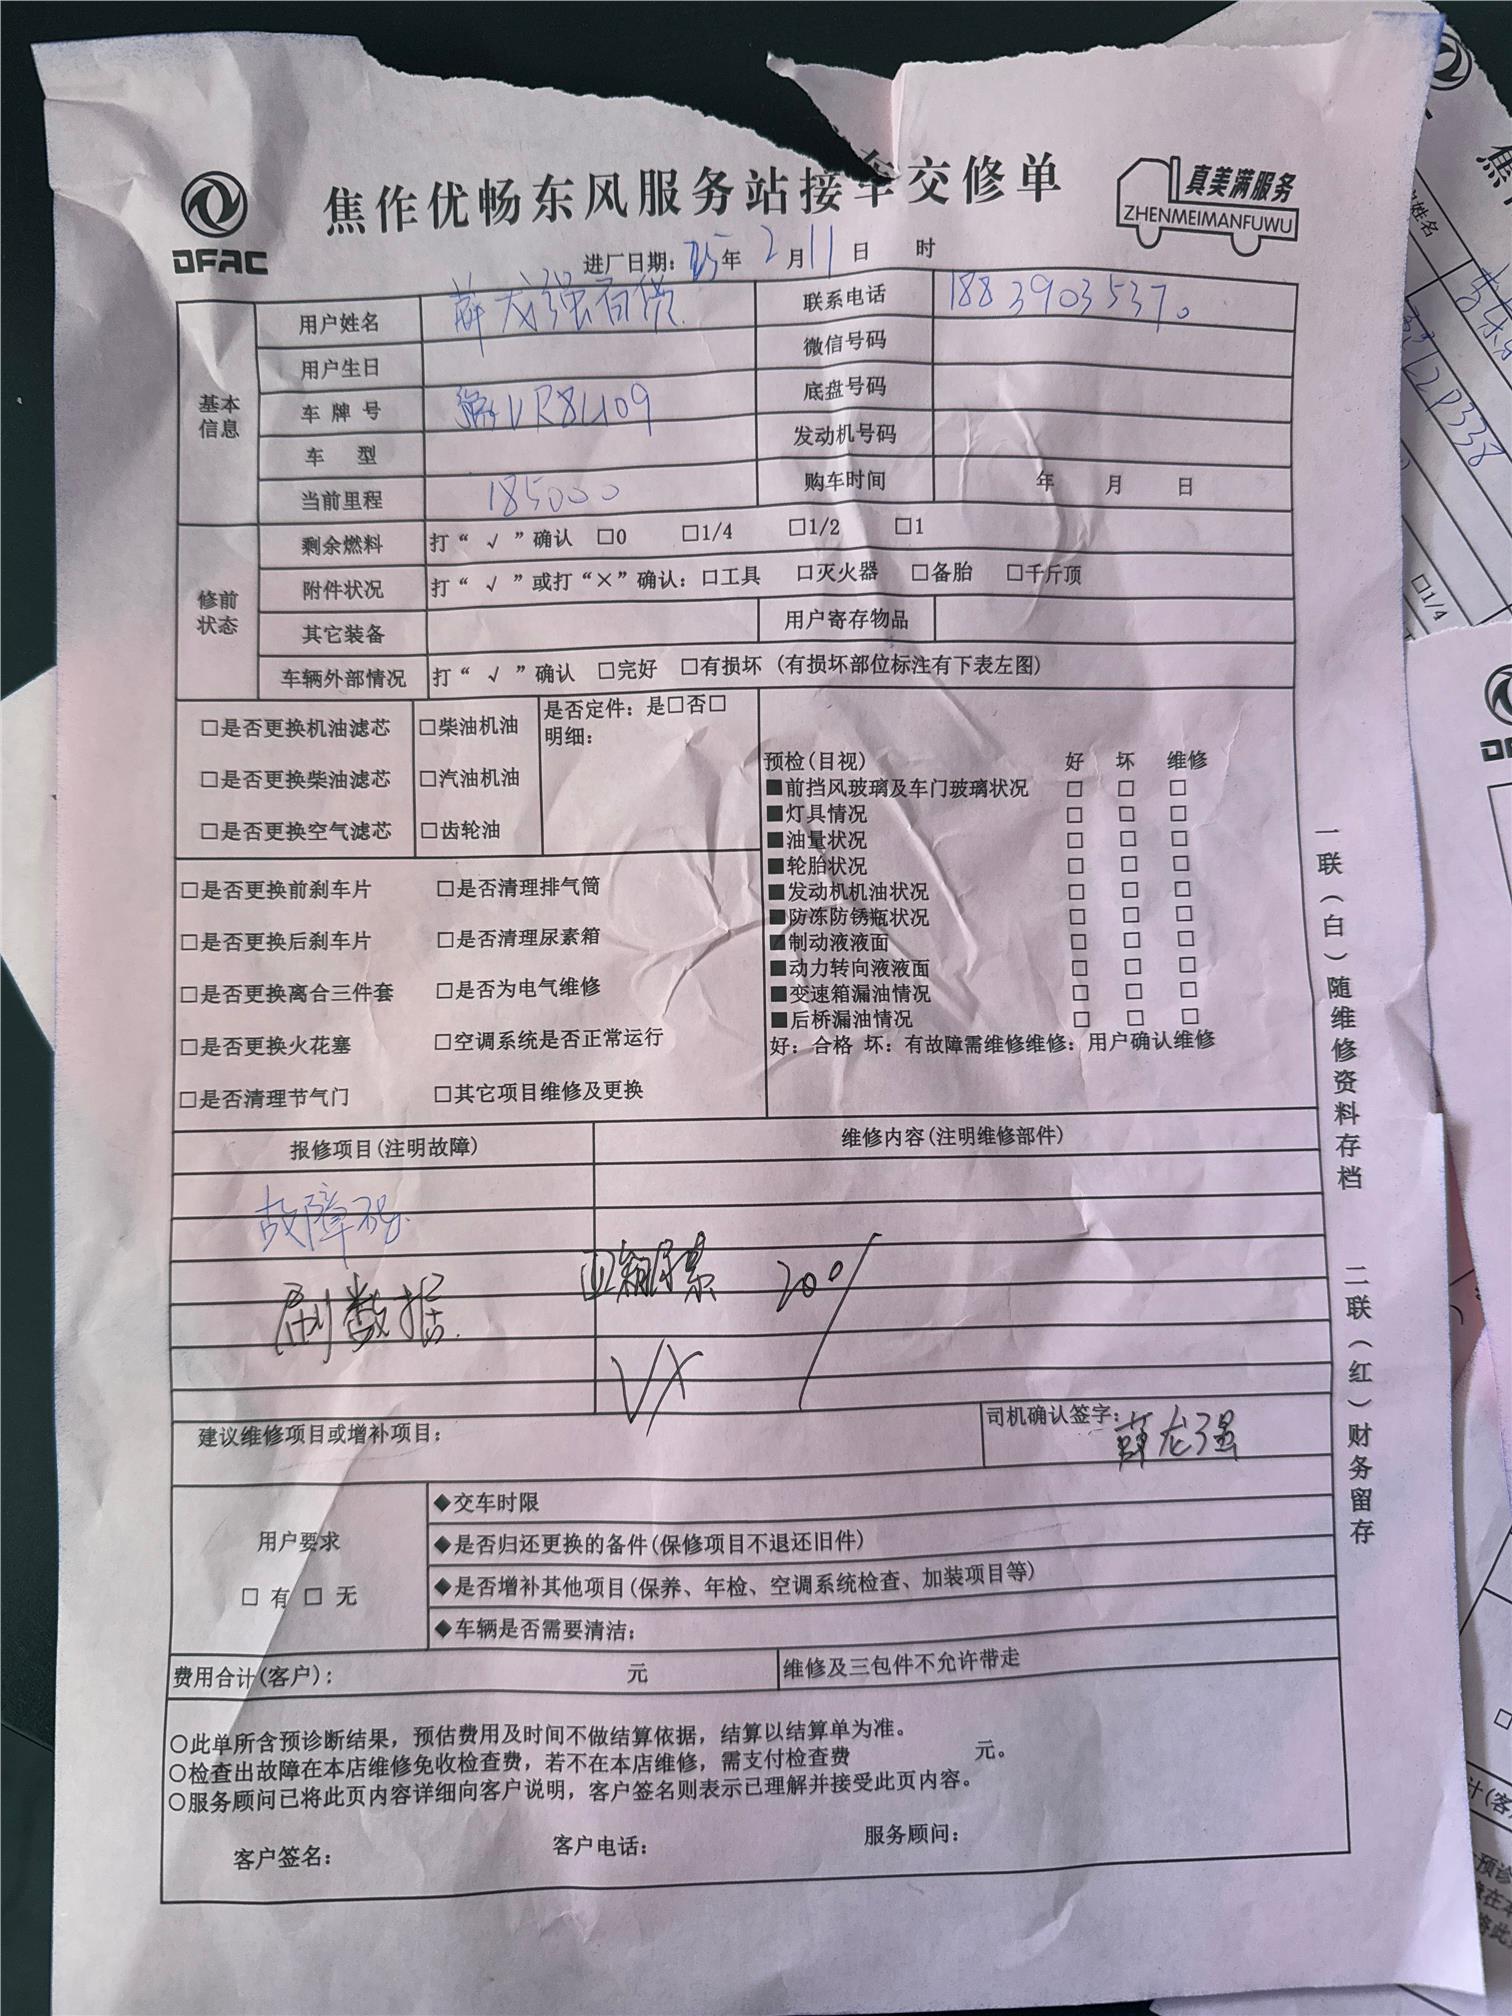 焦作优畅东风服务站接车交修单
DFAC
真美满服务
ZHENMEIMANFUWU
进厂日期: 25年 2月11日 时
基本信息
用户姓名 薛龙强
联系电话 18839035370
用户生日
微信号码
车牌号 豫VR8U09
底盘号码
车 型
发动机号码
当前里程 185000
购车时间 年 月 日
修前状态
剩余燃料 打“ √ ”确认 □0 □1/4 □1/2 □1
附件状况 打“ √ ”或打“×”确认: □工具 □灭火器 □备胎 □千斤顶
其它装备
用户寄存物品
车辆外部情况 打“ √ ”确认 □完好 □有损坏 (有损坏部位标注有下表左图)
□是否更换机油滤芯 □柴油机油
□是否更换柴油滤芯 □汽油机油
□是否更换空气滤芯 □齿轮油
是否定件: 是□否□
明细:
□是否更换前刹车片 □是否清理排气筒
□是否更换后刹车片 □是否清理尿素箱
□是否更换离合三件套 □是否为电气维修
□是否更换火花塞 □空调系统是否正常运行
□是否清理节气门 □其它项目维修及更换
预检(目视) 好 坏 维修
■前挡风玻璃及车门玻璃状况 □ □ □
■灯具情况 □ □ □
■油量状况 □ □ □
■轮胎状况 □ □ □
■发动机机油状况 □ □ □
■防冻防锈瓶状况 □ □ □
■制动液液面 □ □ □
■动力转向液液面 □ □ □
■变速箱漏油情况 □ □ □
■后桥漏油情况 □ □ □
好: 合格 坏: 有故障需维修维修: 用户确认维修
报修项目(注明故障) 维修内容(注明维修部件)
故障码
刷数据 尿素 200/
VX
建议维修项目或增补项目:
司机确认签字: 薛龙强
用户要求
□ 有 □ 无
◆交车时限
◆是否归还更换的备件(保修项目不退还旧件)
◆是否增补其他项目(保养、年检、空调系统检查、加装项目等)
◆车辆是否需要清洁:
费用合计(客户): 元 维修及三包件不允许带走
○此单所含预诊断结果，预估费用及时间不做结算依据，结算以结算单为准。
○检查出故障在本店维修免收检查费，若不在本店维修，需支付检查费 元。
○服务顾问已将此页内容详细向客户说明，客户签名则表示已理解并接受此页内容。
客户签名: 客户电话: 服务顾问:
一联（白）随维修资料存档 二联（红）财务留存
姓名
L2P338
□1/4